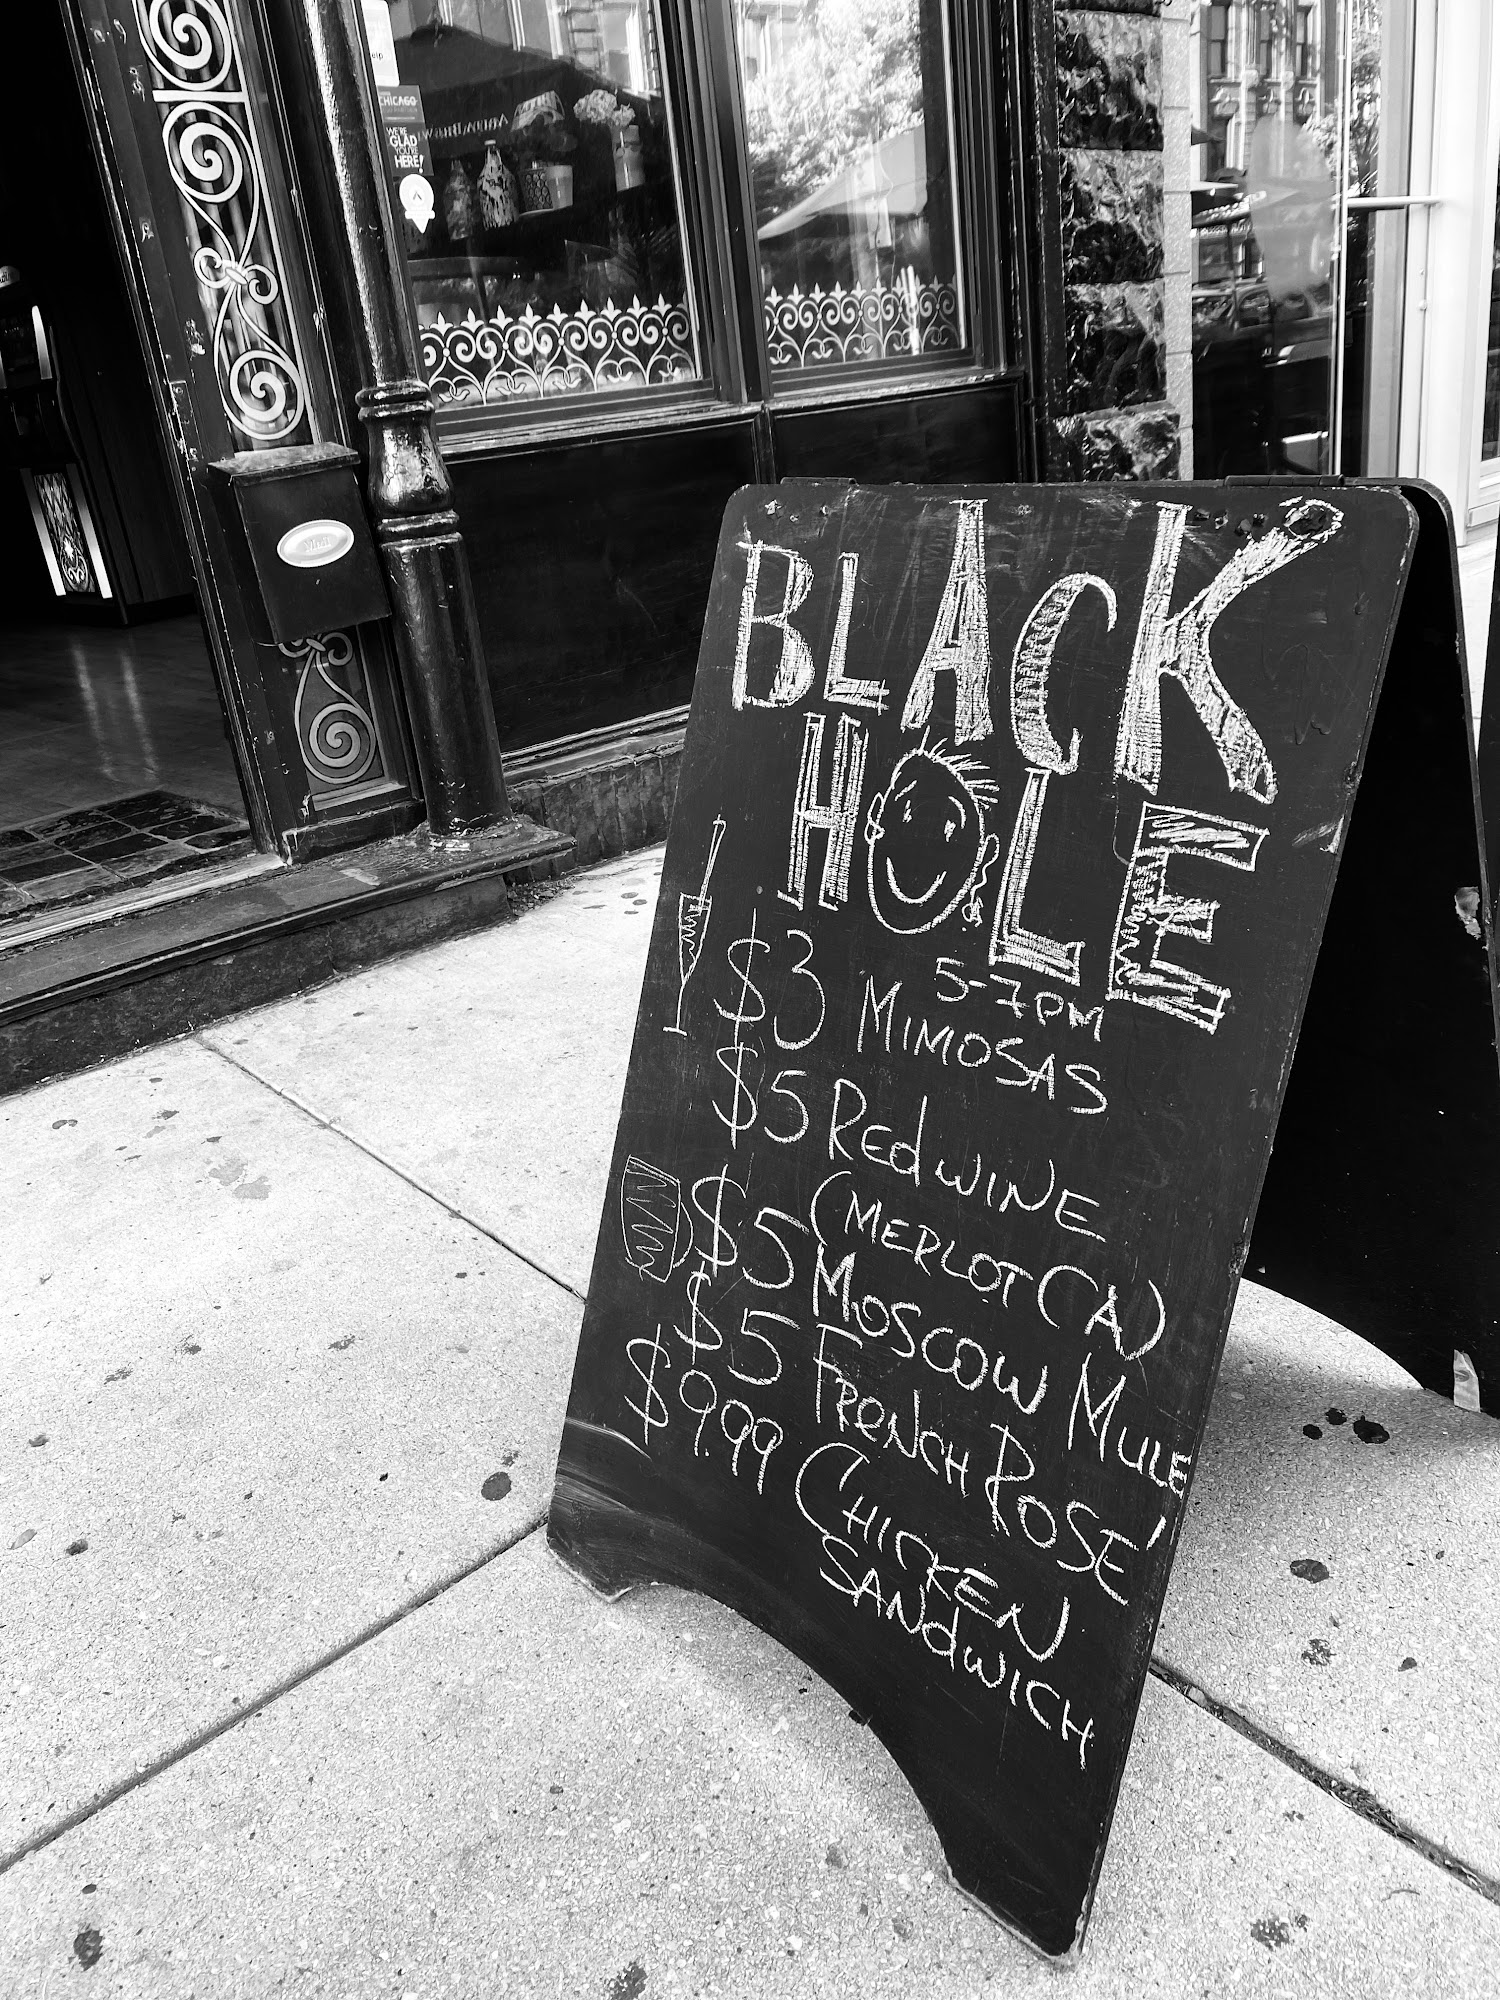 elp
CHICAGO
WE'RE
GLAD
YOU'RE
HERE!
Mail
BLACK
HOLE
5-7PM
$3 MIMOSAS
$5 Red WINE
(MERLOT (CA)
$5 MOSCOW MULE
$5 FRENCH ROSÉ
$9.99 CHICKEN
SANdWICH